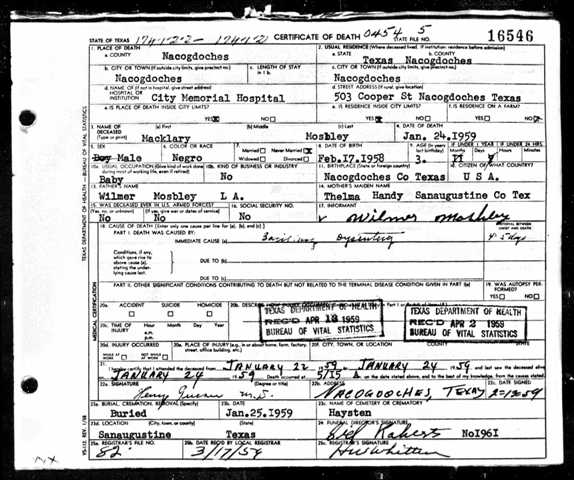 174122- 174412 CERTIFICATE OF DEATH 0454 5
STATE OF TEXAS STATE FILE NO. 16546
1. PLACE OF DEATH 2. USUAL RESIDENCE (Where deceased lived. If institution: residence before admission)
a. COUNTY Nacogdoches a. STATE Texas b. COUNTY Nacogdoches
b. CITY OR TOWN (If outside city limits, give precinct no.) c. LENGTH OF STAY in 1 b. c. CITY OR TOWN (If outside city limits, give precinct no.)
Nacogdoches Nacogdoches
d. NAME OF (If not in hospital, give street address) HOSPITAL OR INSTITUTION City Memorial Hospital d. STREET ADDRESS (If rural, give location) 503 Cooper St Nacogdoches Texas
e. IS PLACE OF DEATH INSIDE CITY LIMITS? YES NO e. IS RESIDENCE INSIDE CITY LIMITS? YES NO f. IS RESIDENCE ON A FARM? YES NO
3. NAME OF DECEASED (Type or print) (a) First (b) Middle (c) Last 4. DATE OF DEATH
Macklary Mosbley Jan. 24.1959
5. SEX 6. COLOR OR RACE 7. Married Never Married Widowed Divorced 8. DATE OF BIRTH 9. AGE (In years last birthday) IF UNDER 1 YEAR IF UNDER 24 HRS.
Boy Male Negro Feb.17.1958
10a. USUAL OCCUPATION (Give kind of work done during most of working life, even if retired) 10b. KIND OF BUSINESS OR INDUSTRY 11. BIRTHPLACE (State or foreign country) 12. CITIZEN OF WHAT COUNTRY?
Baby No Nacogdoches Co Texas U S A.
13. FATHER'S NAME 14. MOTHER'S MAIDEN NAME
Wilmer Mosbley L A. Thelma Handy Sanaugustine Co Tex
15. WAS DECEASED EVER IN U.S. ARMED FORCES? 16. SOCIAL SECURITY NO. 17. INFORMANT
(Yes, no, or unknown) (If yes, give war or dates of service)
No No No Wilmer Mosbley
18. CAUSE OF DEATH (Enter only one cause per line for (a), (b), and (c).) INTERVAL BETWEEN ONSET AND DEATH
PART I. DEATH WAS CAUSED BY:
IMMEDIATE CAUSE (a) Dysentery
Conditions, if any, which gave rise to above cause (a), stating the underlying cause last.
DUE TO (b)
DUE TO (c)
PART II. OTHER SIGNIFICANT CONDITIONS CONTRIBUTING TO DEATH BUT NOT RELATED TO THE TERMINAL DISEASE CONDITION GIVEN IN PART I (a) 19. WAS AUTOPSY PERFORMED? YES NO
MEDICAL CERTIFICATION
20a. ACCIDENT SUICIDE HOMICIDE 20b. DESCRIBE HOW INJURY OCCURRED
20c. TIME OF INJURY Hour Month Day Year
TEXAS DEPARTMENT OF HEALTH
REC'D APR 1959
BUREAU OF VITAL STATISTICS
TEXAS DEPARTMENT OF HEALTH
REC'D APR 2 1959
BUREAU OF VITAL STATISTICS
20d. INJURY OCCURRED WHILE AT WORK NOT WHILE AT WORK 20e. PLACE OF INJURY (e.g., in or about home, farm, factory, street, office building, etc.) 20f. CITY, TOWN, OR LOCATION COUNTY STATE
21. I hereby certify that I attended the deceased from JANUARY 22 1959 to JANUARY 24 1959. and last saw the deceased alive
JANUARY 24 1959 Death occurred at 5/15 on the date stated above, and to the best of my knowledge, from the causes stated.
22a. SIGNATURE (Degree or title) 22b. ADDRESS 22c. DATE SIGNED
M.D. NACOGDOCHES, TEXAS
23a. BURIAL, CREMATION, REMOVAL (Specify) 23b. DATE 23c. NAME OF CEMETERY OR CREMATORY
Buried Jan.25.1959 Haysten
23d. LOCATION (City, town, or county) (State) 24. FUNERAL DIRECTOR'S SIGNATURE
Sanaugustine Texas No1961
25a. REGISTRAR'S FILE NO. 25b. DATE REC'D BY LOCAL REGISTRAR 25c. REGISTRAR'S SIGNATURE
82 3/17/59
TEXAS DEPARTMENT OF HEALTH — BUREAU OF VITAL STATISTICS